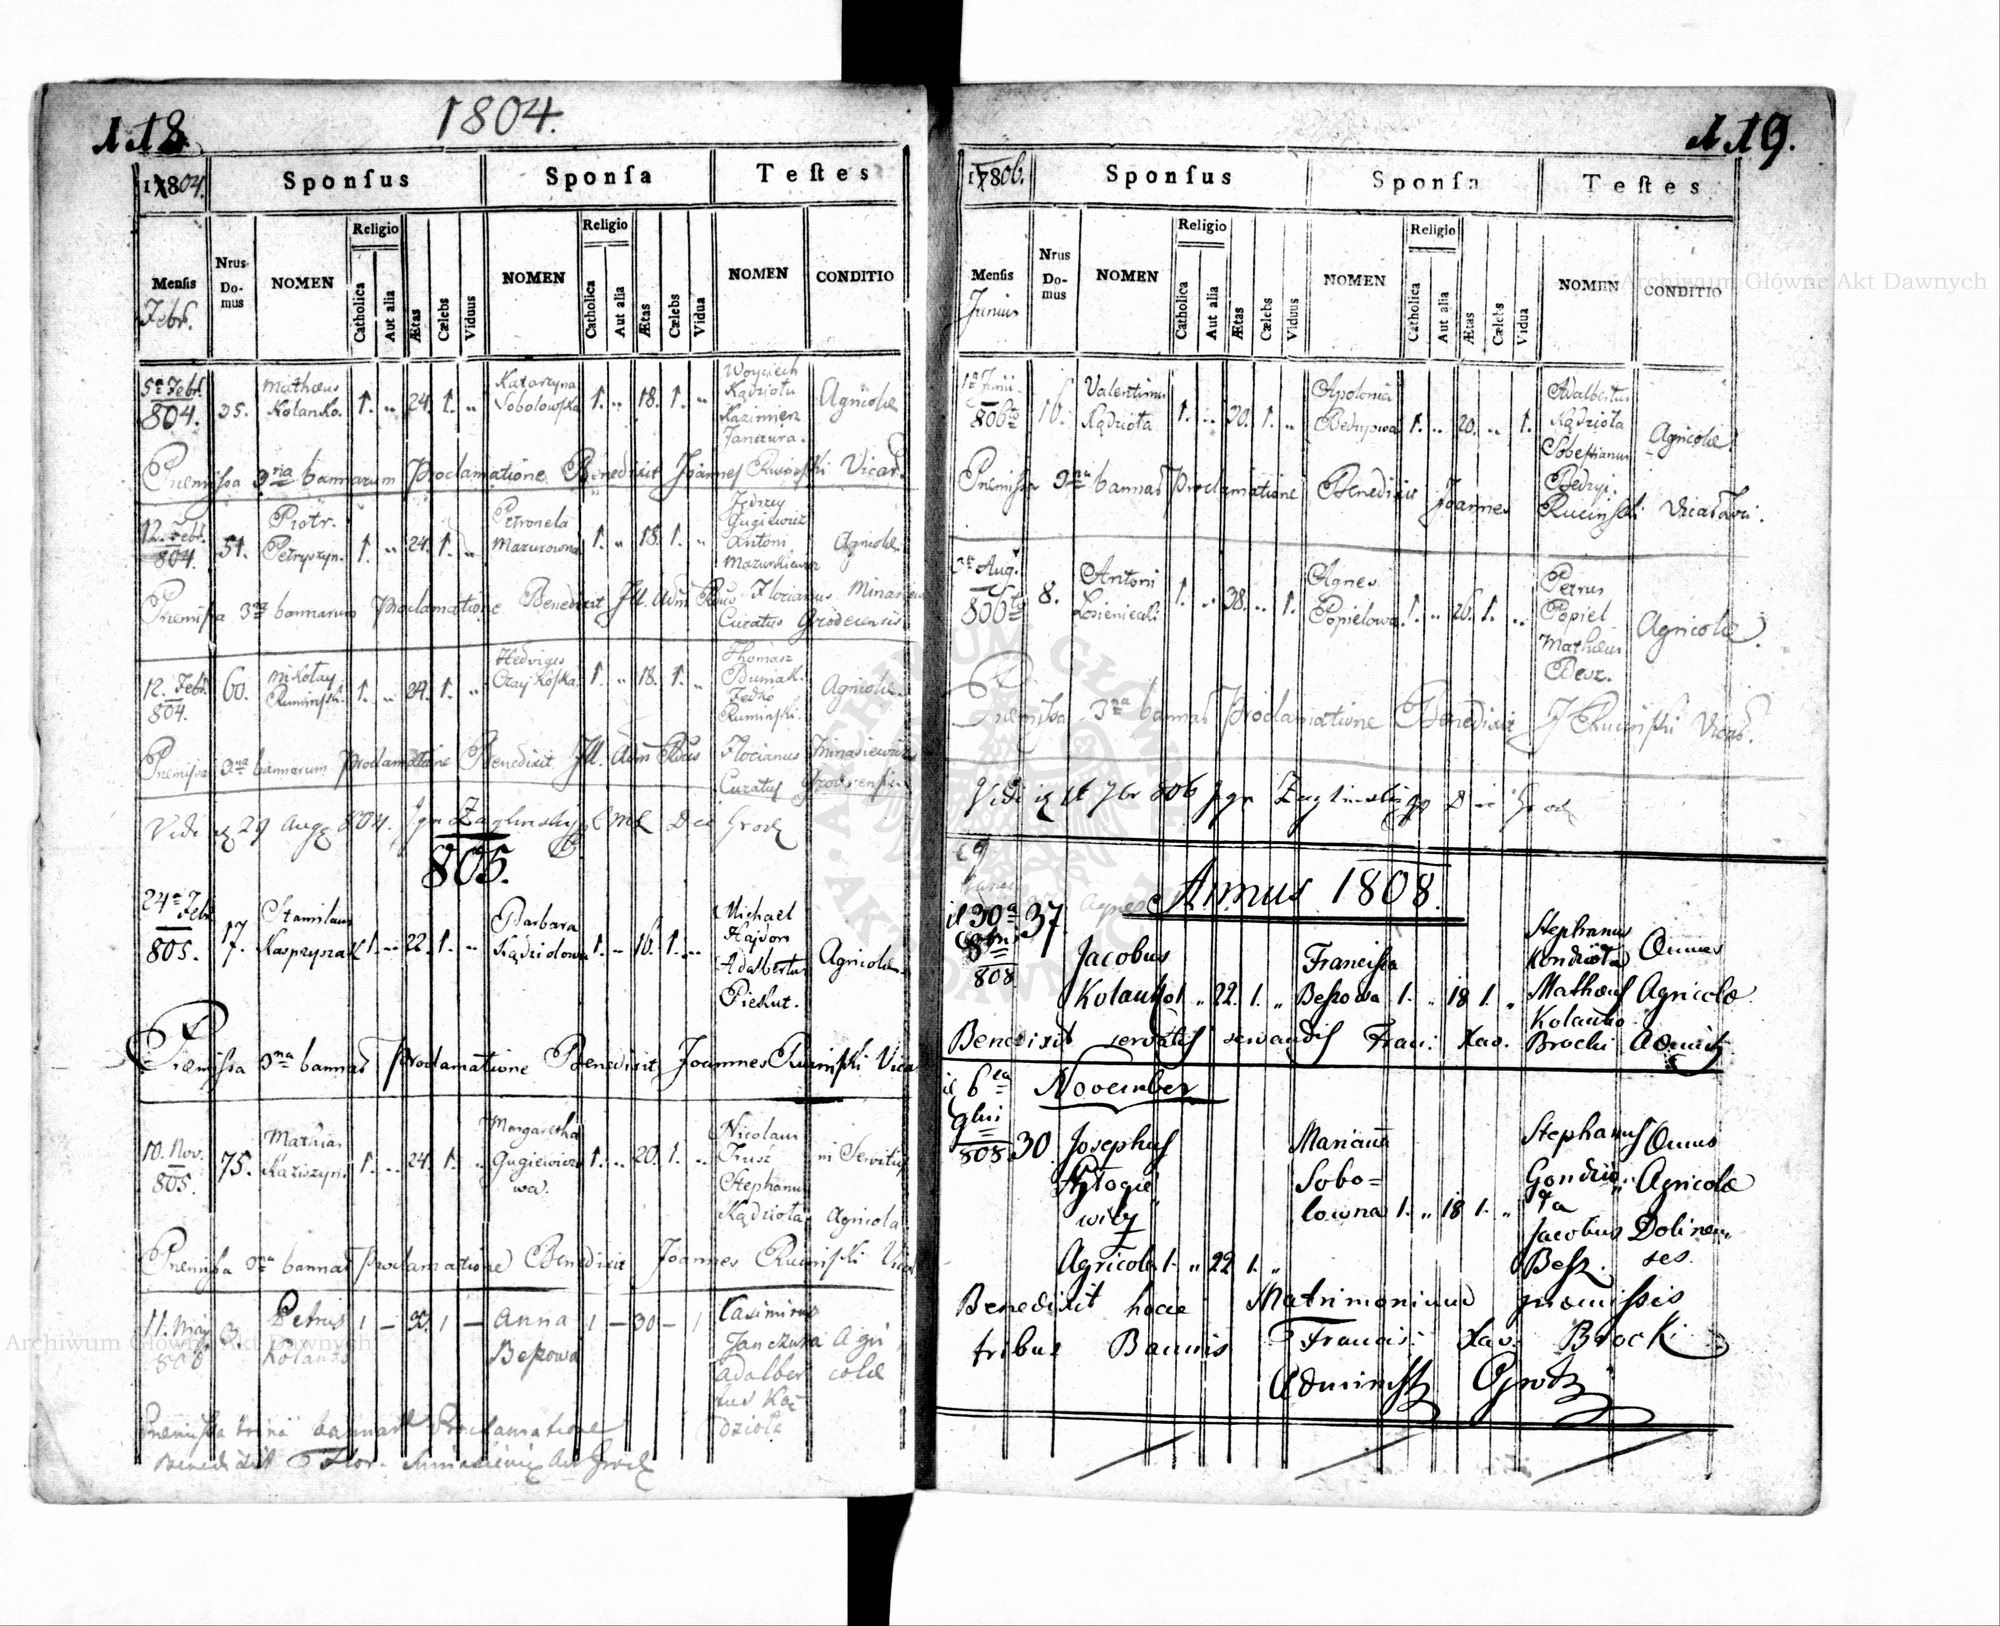 118.
1804.
1804.
Sponsus
Sponsa
Testes
Mensis
Febr.
Nrus Do-mus
NOMEN
Religio
Catholica
Aut alia
Ætas
Cælebs
Viduus
NOMEN
Religio
Catholica
Aut alia
Ætas
Cælebs
Vidua
NOMEN
CONDITIO
5ta Febr. 804. 35. Mathæus Kolanko. 1. „ 24. 1. „ Katarzyna Sobolowska 1. „ 18. 1. „ Woyciech Kądziola Kazimierz Janczura. Agricolæ
Præmissa 3na bannarum Proclamatione Benedixit Joannes Ruciński Vicar.
12. Febr. 804. 51. Piotr. Petryszyn. 1. „ 24. 1. „ Petronela Mazurowna 1. „ 18. 1. „ Jędrzy Gugiewicz Antoni Mazurkiewicz Agricolæ
Præmissa 3na bannarum Proclamatione Benedixit Ill. Adm Rdus Florianus
Curatus Grodecensis
12. Febr. 804. 60. Mikołay Rumiński. 1. „ 24. 1. „ Hedviges 1. „ 18. 1. „ Thomasz Dumak. Fedko Rumiński. Agricolæ
Præmissa 3na bannarum Proclamatione Benedixit Ill. Adm Rdus Florianus Minasiewicz
Curatus Grodecensis
Vidi 29 Aug 804.
805.
24a Febr 805. 17. Stanislaus Kasprzyszak 1. „ 22. 1. „ Barbara Kądziolowa 1. „ 16. 1. „ Michael Hajdon Adalbertus Pieslut. Agricolæ
Præmissa 3na bannar Proclamatione Benedixit Joannes Ruciński Vica
10. Nov. 805. 75. Mathias Kaziszyn. 1. „ 24. 1. „ Margaretha Gugiewiczowa. 1. „ 20. 1. „ Nicolaus Trusz in Servitus Stephanus Kądziola Agricola
Præmissa 3na bannar Proclamatione Benedixit Joannes Ruciński Vica
11. May 806 3. Petrus Kolanko 1 – 30. 1 – Anna Beszowa 1 – 30 – 1 Casimirus Janczura Adalbertus Kądziola Agricolæ
Præmissa trina bannar Proclamatione
Benedixit Flor. Minasiewicz
119.
1806.
Sponsus
Sponsa
Testes
Mensis
Junius
Nrus Do-mus
NOMEN
Religio
Catholica
Aut alia
Ætas
Cælebs
Viduus
NOMEN
Religio
Catholica
Aut alia
Ætas
Cælebs
Vidua
NOMEN
CONDITIO
1a Junii 806to 16. Valentinus Kądziola 1. „ 30. 1. „ Apolonia 1. „ 20. „ 1. Adalbertus Kądziola Sobestianus Agricolæ
Præmissa 3na bannar Proclamatione Benedixit Joannes Ruciński
3a Aug. 806to 8. Antoni 1. „ 38. „ 1. Agnes Popielowa 1. „ 26. 1. „ Petrus Popiel Mathæus Besz. Agricolæ
Præmissa 3na bannar Proclamatione Benedixit J Ruciński Vicar.
Vidi 7br 806
Annus 1808.
30a 8bris 808 37. Jacobus Kolanko 1 „ 22. 1. „ Francisca Beszowa 1. „ 18 1. „ Stephanus Kondziola Mathæus Kolanko Omnes Agricolæ
Benedixit servatis servandis Franc: Xav. Brocki Administ
November
6ta 9bri 808 30 Josephus Agricola 1. „ 22 1. „ Marianna Sobo=lowna 1. „ 18 1. „ Stephanus Gondziola Jacobus Besz. Omnes Agricolæ Dolinenses.
Benedixit hocce Matrimonium præmissis
tribus Bannis Francis: Xav. Brocki
Archiwum Główne Akt Dawnych
Archiwum Główne Akt Dawnych
ARCHIWUM GŁÓWNE AKT DAWNYCH